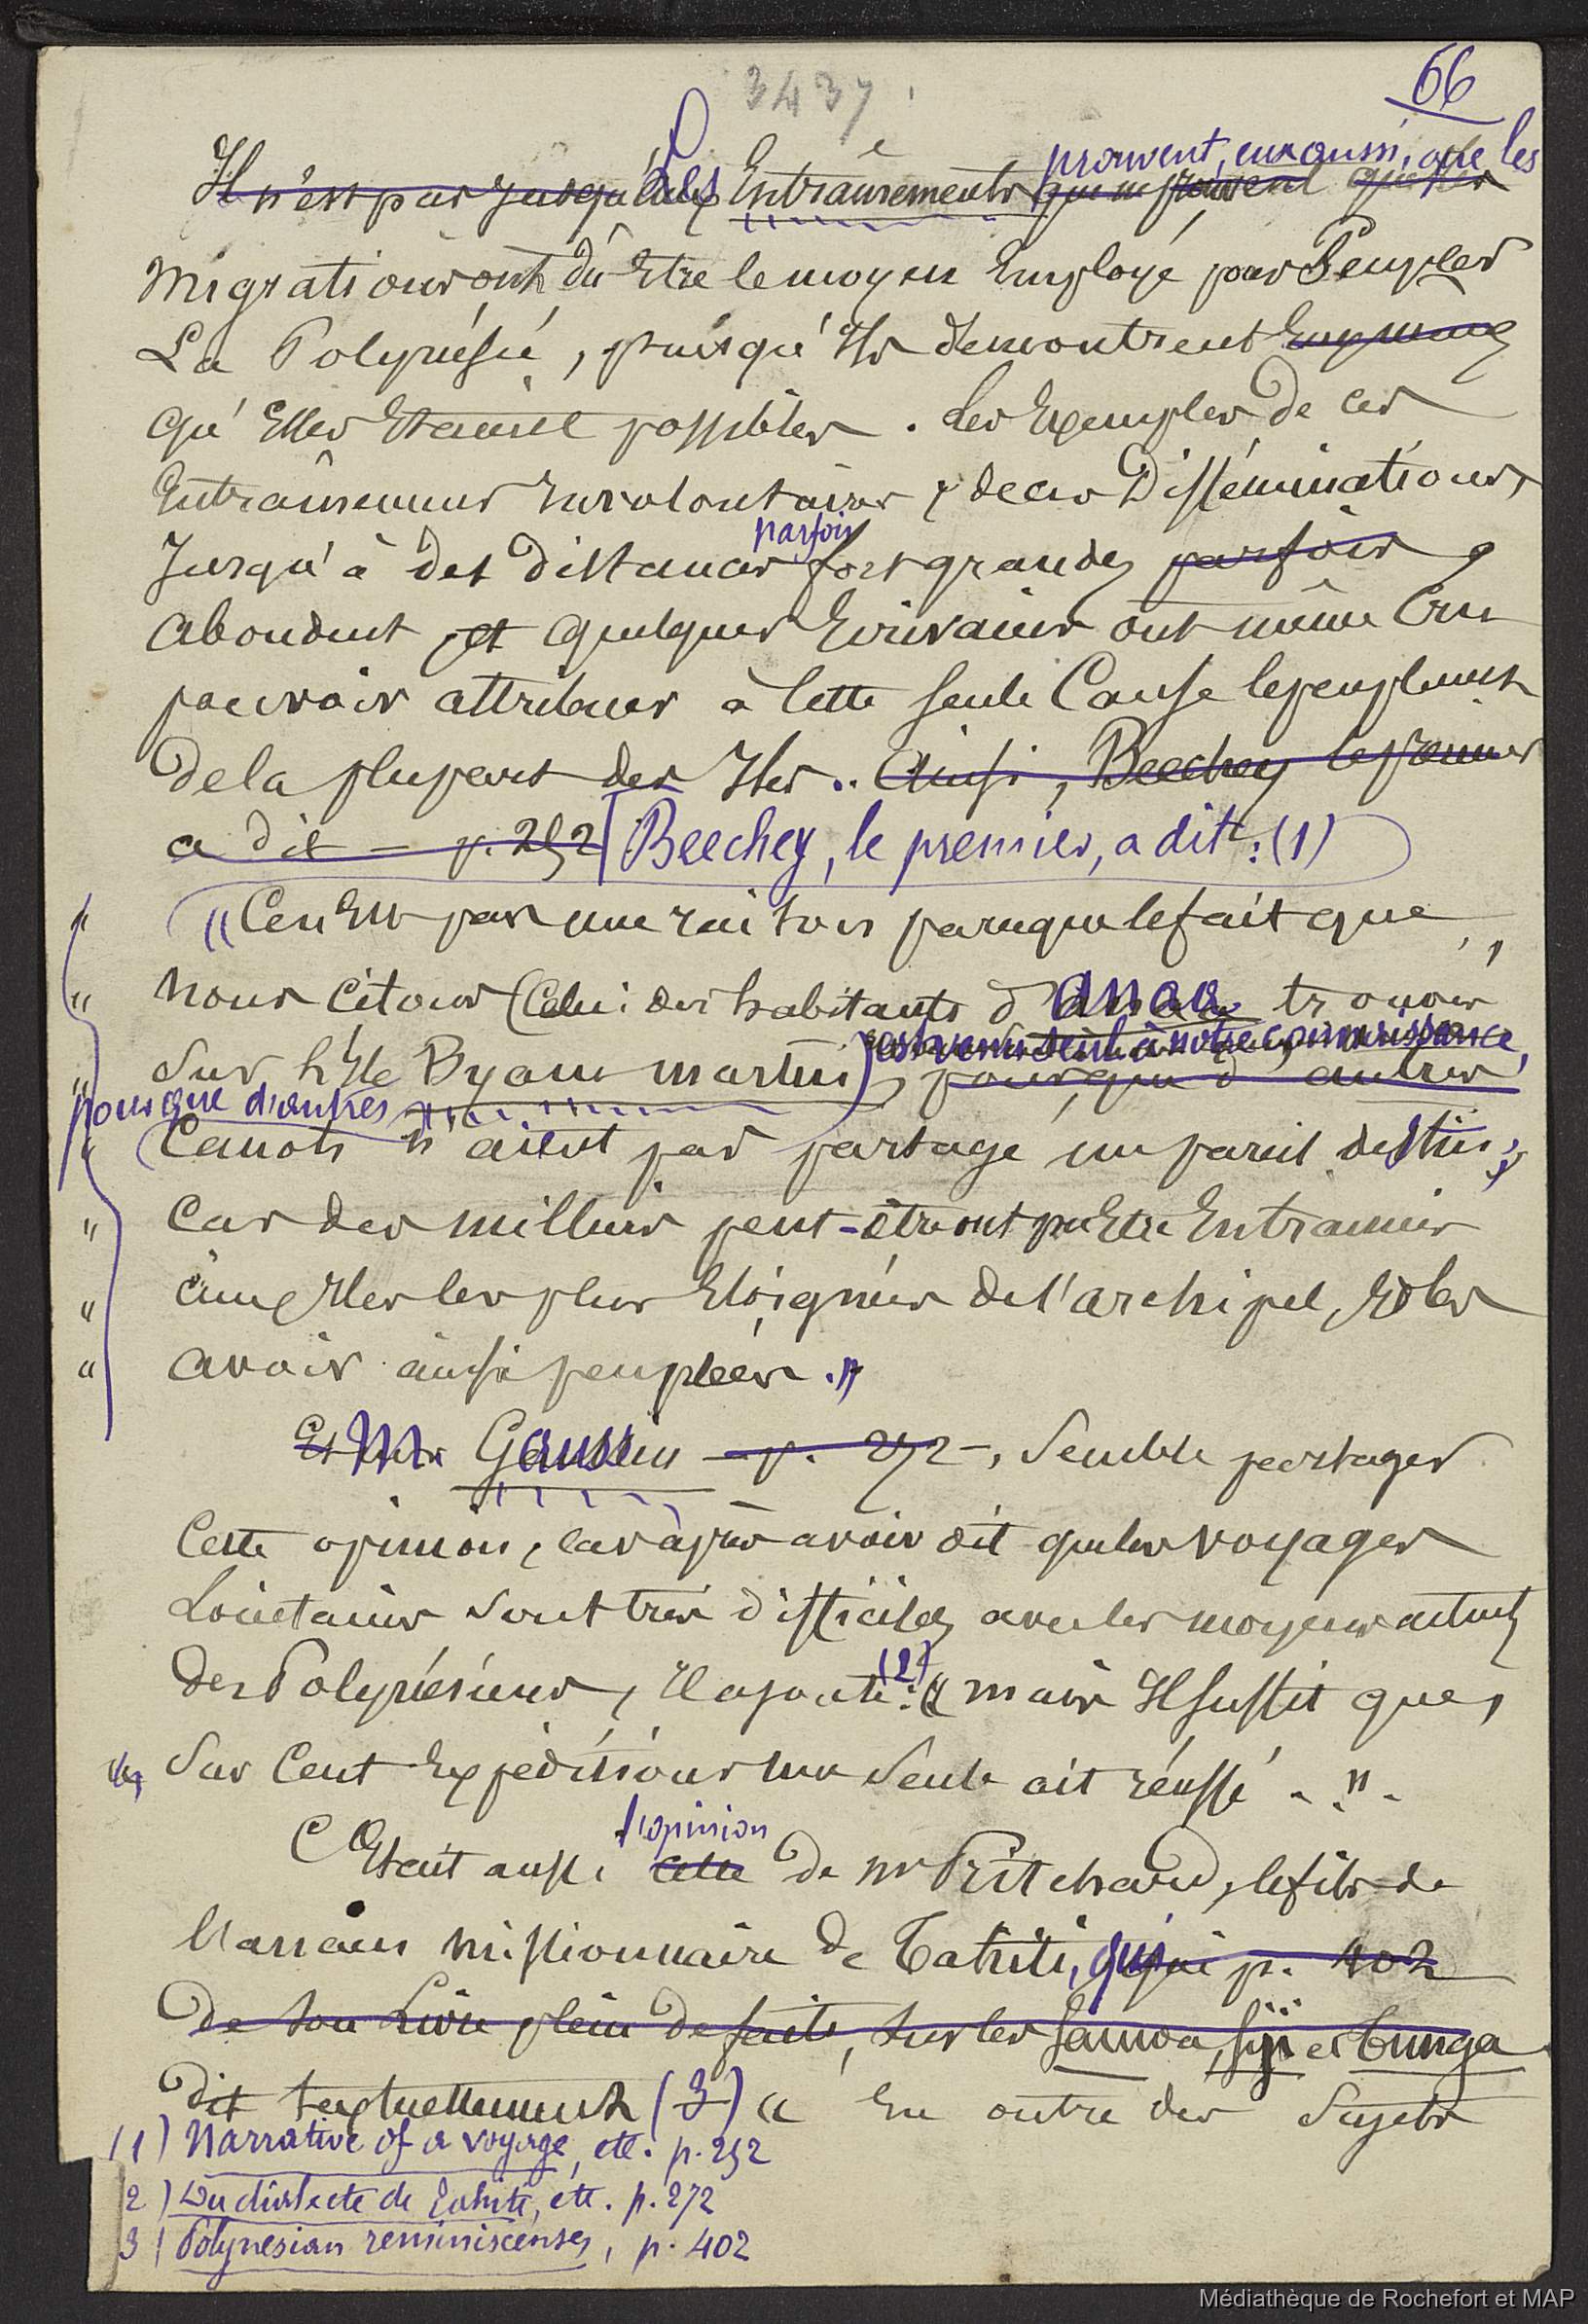 3437
66
prouvent, eux aussi, que les
Il n'est pas jusqu'aux Les Entraînements qui ne prouvent que les
migrations ont dû Etre le moyen Employé pour Peupler
La Polynésie, puisqu'Ils démontrent
qu'Elles Etaient possibles. Les Exemples de ces
Entraînements Involontaires & de ces Disséminations,
parfois
Jusqu'à des distances fort grandes parfois,
abondent et quelques Ecrivains ont même Cru
pouvoir attribuer à Cette seule Cause le peuplement
de la plupart des Iles.. Ainsi, Beechey le premier
a dit — p. 252 Beechey, le premier, a dit : (1)
" "Ce n'Est pas une raison parceque le fait que,
" nous citons (Celui des habitants d'Anaa trouvés
est venu seul à notre connaissance,
" sur l'Ile Byam martin), pour que d'autres
pour que d'autres
" Canots n'aient pas partagé un pareil destin;
" Car des milliers peut-être ont pu Etre Entrainés
" aux Iles les plus Eloignées de l'archipel, & les
" avoir ainsi peuplées."
Et Mr Gaussin — p. 272 —, Semble partager
Cette opinion, car après avoir dit que les voyages
Lointains sont très difficiles avec les moyens actuels
des Polynésiens, Il ajoute (2) : " mais Il suffit que,
" Sur Cent Expéditions une Seule ait réussi . ".
l'opinion
C'Etait aussi celle de Mr Pritchard, le fils de
l'ancien missionnaire de Tahiti, qui p. 402
de son Livre plein de faits, sur les Samoa, Fiji et Tunga
dit textuellement (3) " En outre des Sujets
(1) Narrative of a voyage, etc. p. 252
2) Du dialecte de Tahiti, etc. p. 272
3) Polynesian reminiscenses, p. 402
Médiathèque de Rochefort et MAP